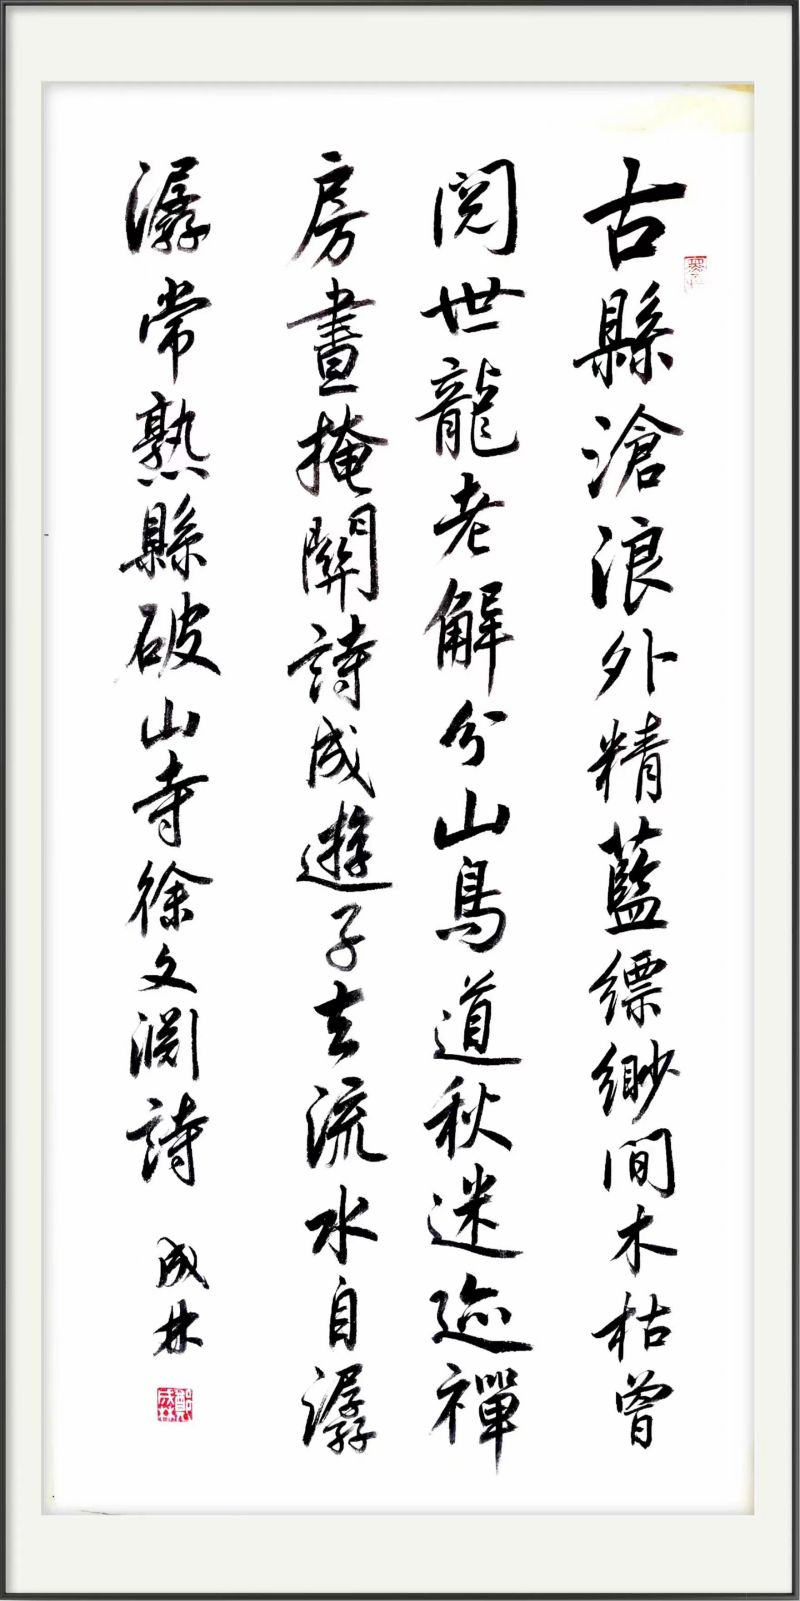 古縣滄浪外精藍縹緲間木枯曾
閱世龍老解分山鳥道秋迷迹禪
房晝掩關詩成遊子去流水自潺
潺常熟縣破山寺徐文淵詩
成林